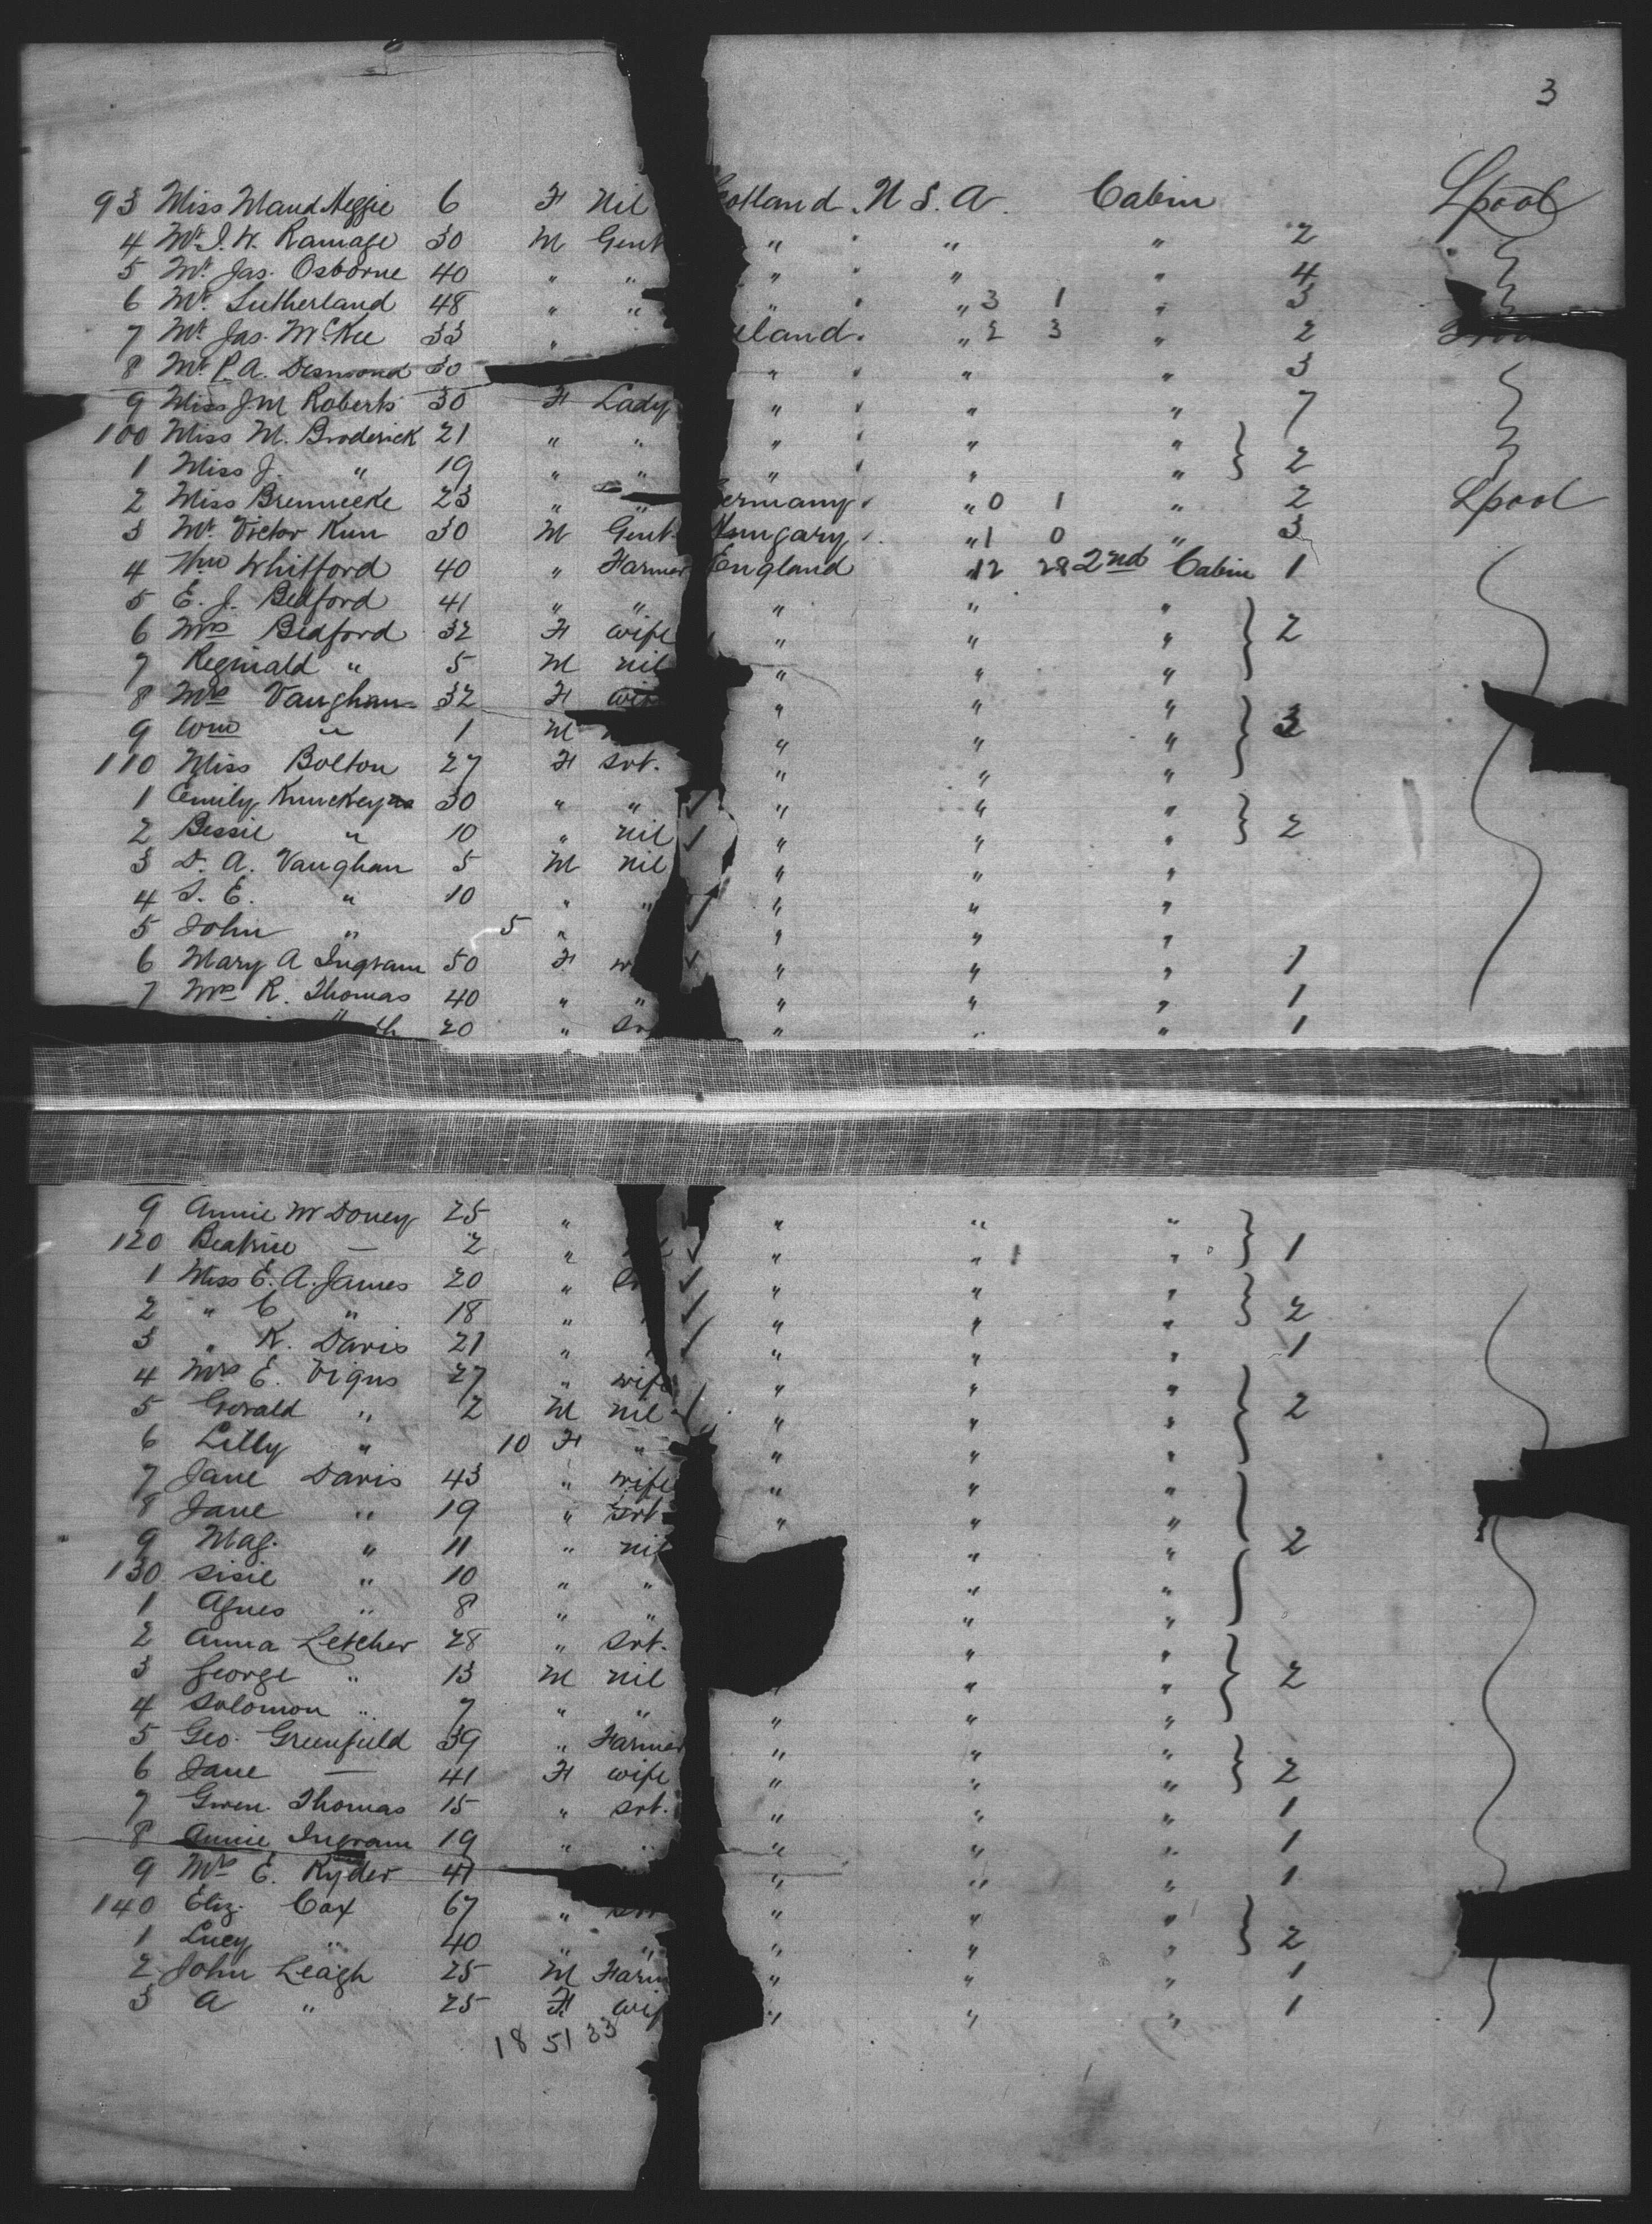 3
93 Miss Maud Meggie 6 F Nil Scotland U S. A. Cabin Lpool
4 Mr. J. W. Ramage 30 M Gent " " " 2
5 Mr. Jas. Osborne 40 " " " " " 4
6 Mr. Sutherland 48 " " " " 3 1 " 3
7 Mr. Jas. McKee 33 " eland. " 2 3 " 2
8 Mr. P. A. Desmond 30 " " " 3
9 Miss J. M Roberts 30 F Lady " " " 7
100 Miss M. Broderick 21 " " " " "
1 Miss J. " 19 " " " " " } 2
2 Miss Brennecke 23 " " ermany " 0 1 " 2 Lpool
3 Mr. Victor Kun 30 M Gent. Hungary " 1 0 " 3
4 Wm Whitford 40 " Farmer England 12 28 2nd Cabin 1
5 E. J. Bedford 41 " " " " "
6 Mrs Bedford 32 F wife " " " } 2
7 Reginald " 5 M nil " " "
8 Mrs Vaughan 32 F wif " " "
9 Wm " 1 M " " " } 3
110 Miss Bolton 27 F Svt. " " "
1 Emily 30 " " " " "
2 Bessie " 10 " nil " " " } 2
3 D. A. Vaughan 5 M nil " " "
4 S. E. " 10 " " " " "
5 John " 5 " " " "
6 Mary A Ingram 50 F w " " " 1
7 Mrs R. Thomas 40 " " " " " 1
th 20 " Sv " " " 1
9 Annie M Doney 25 " " " "
120 Beatrice — 2 " " " " } 1
1 Miss E. A. James 20 " S " " "
2 " C " 18 " " " " } 2
3 " K. Davis 21 " " " " 1
4 Mrs E. Vigus 27 " wife " " "
5 Gerald " 2 M nil " " " } 2
6 Lilly " 10 F " " " "
7 Jane Davis 43 " wife " " "
8 Jane " 19 " Svt " " "
9 Mag. " 11 " nil " " } 2
130 Sisie " 10 " " " "
1 Agnes " 8 " " " "
2 Anna Letcher 28 " Svt. " "
3 George " 13 M nil " " " } 2
4 Solomon " 7 " " " " "
5 Geo. Greenfield 39 " Farmer " " "
6 Jane — 41 F wife " " " } 2
7 Gwen Thomas 15 " Svt. " " " 1
8 Annie Ingram 19 " " " " " 1
9 Mrs E. Ryder 41 " " " 1
140 Eliz. Cox 67 " " " "
1 Lucy " 40 " " " " " } 2
2 John Leagh 25 M Farm " " " 1
3 A " 25 F wif " " " 1
18 51 33